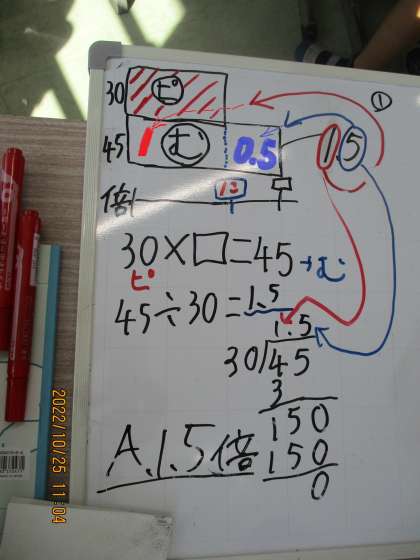 ①
30 ピ
45 1 む 0.5 1.5
倍 1こ
30×□=45→む
ピ
45÷30=1.5
1.5
30)45
3
150
150
0
A.1.5倍
2022/10/25 11:04